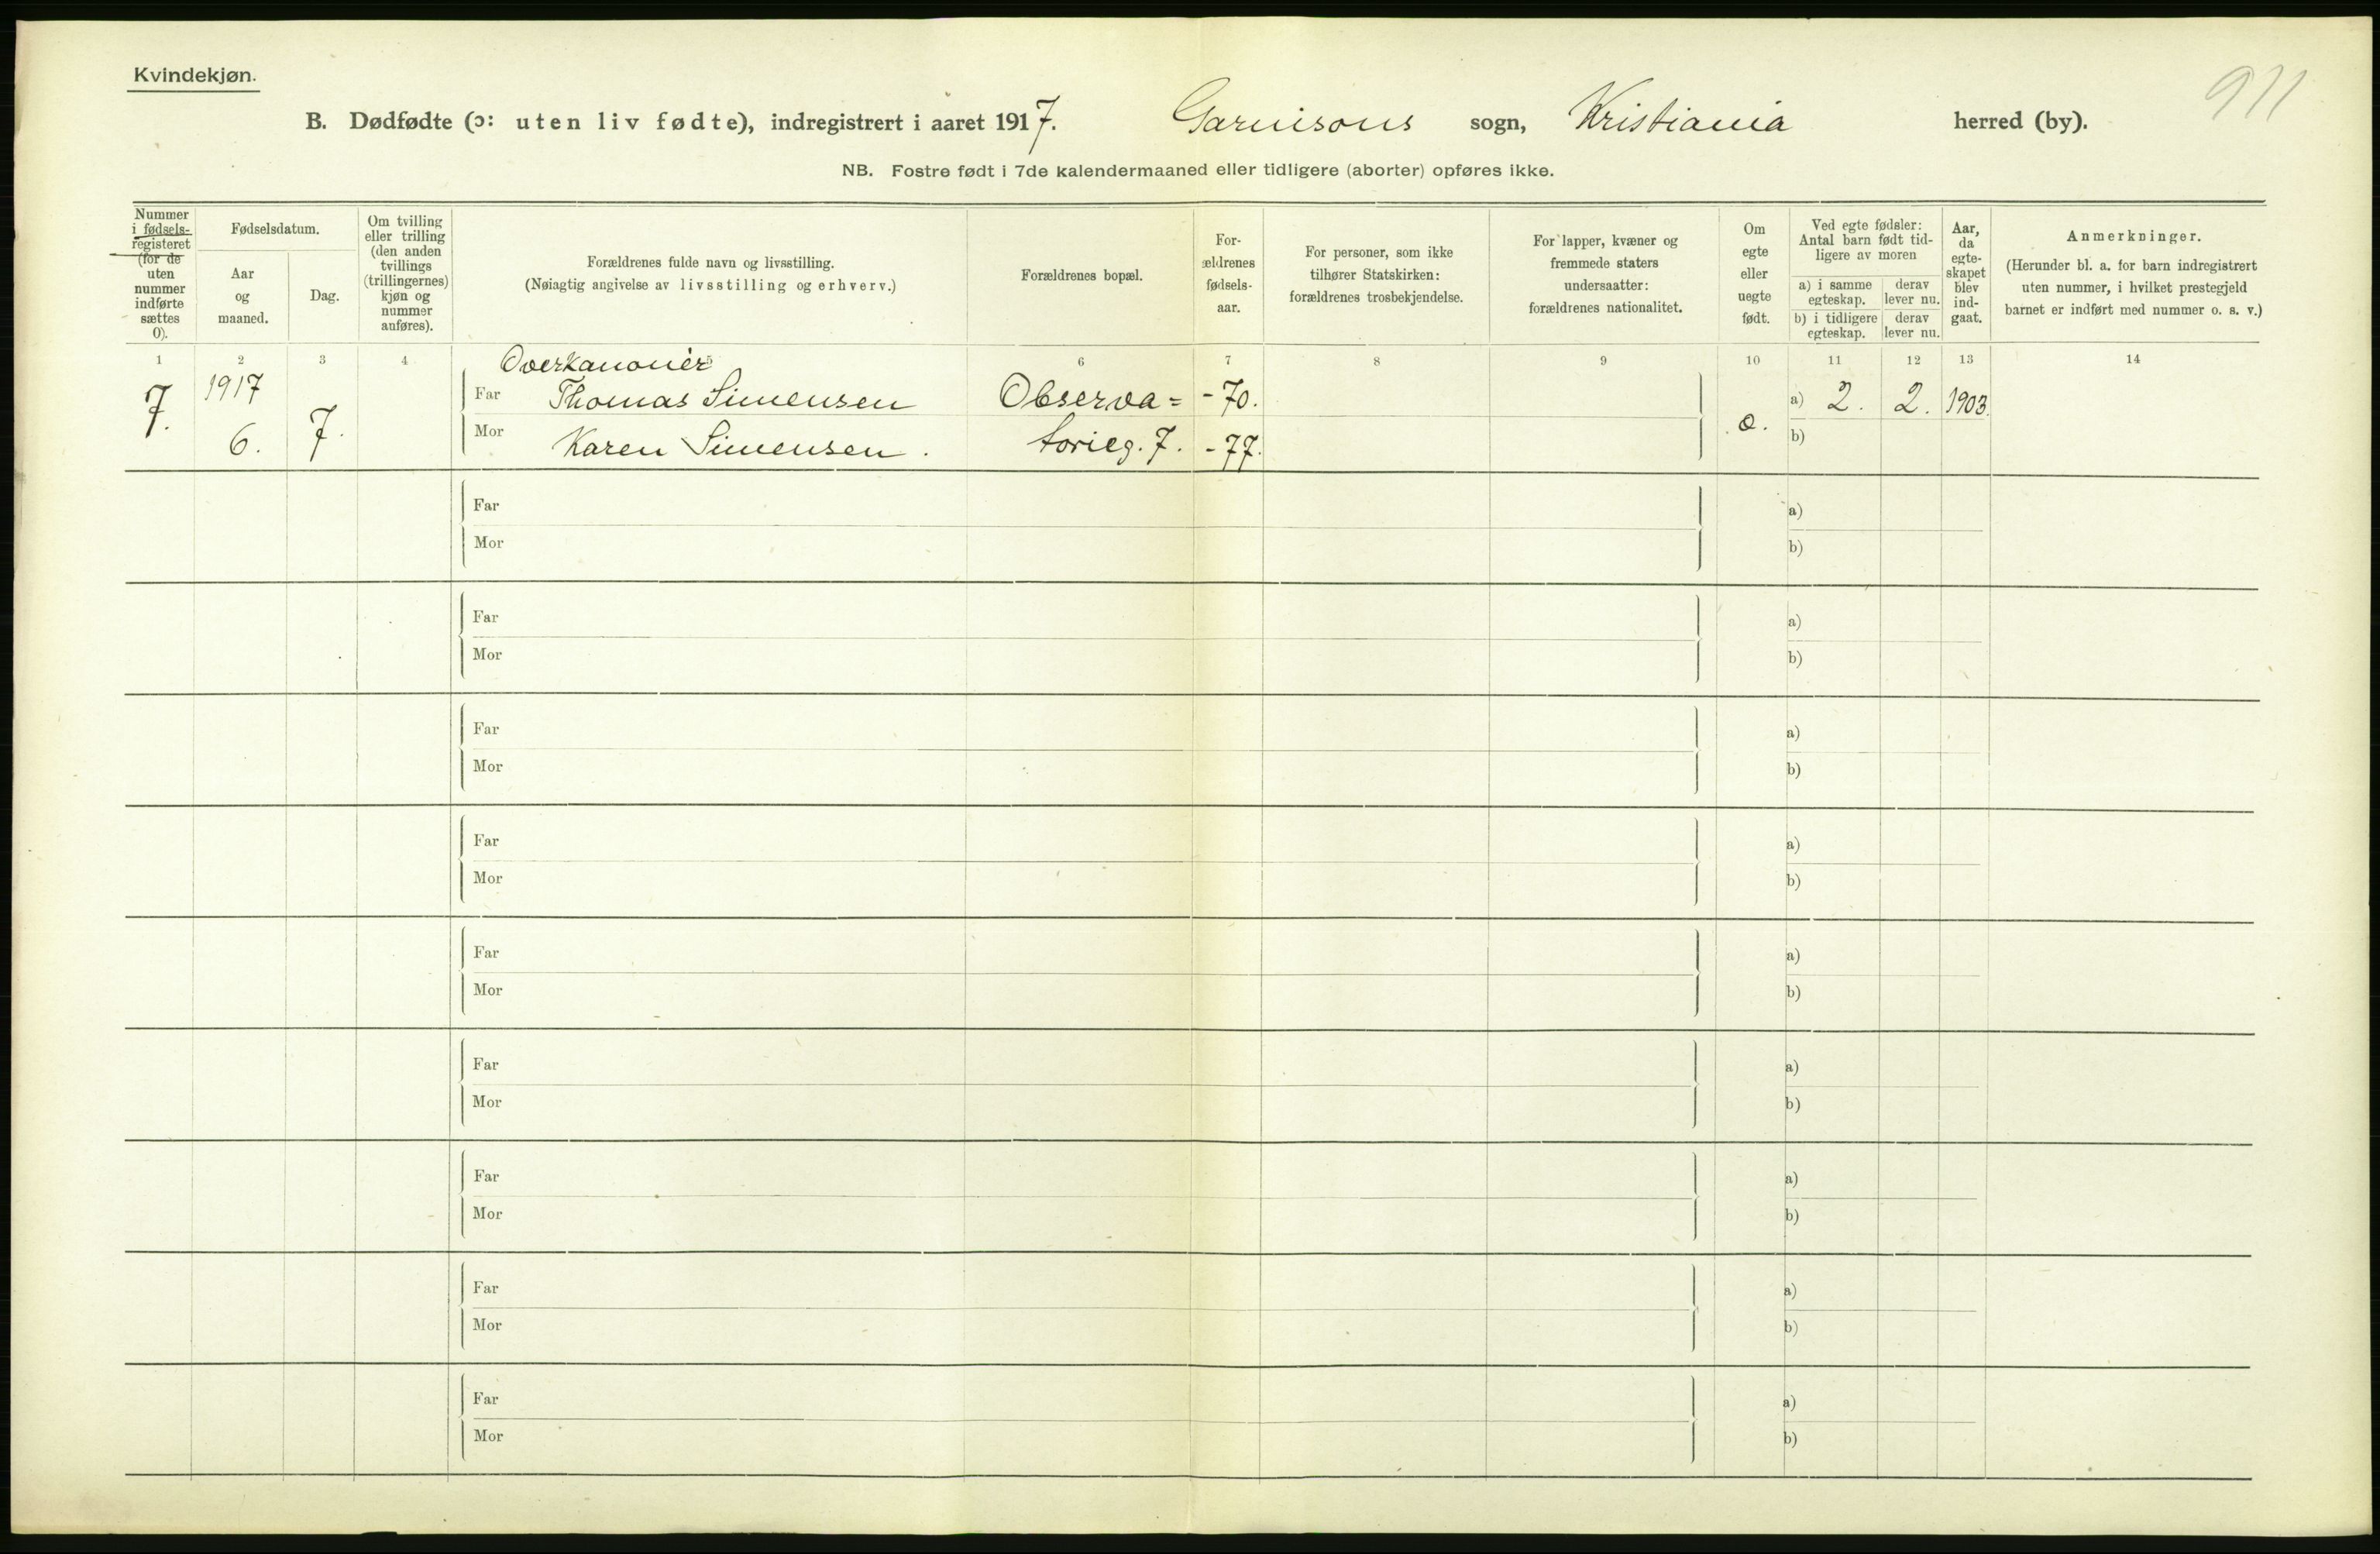 Kvindekjøn.
911
B. Dødfødte (ɔ: uten liv fødte), indregistrert i aaret 1917. Garnisons sogn, Kristiania herred (by).
NB. Fostre født i 7de kalendermaaned eller tidligere (aborter) opføres ikke.
Nummer
i fødsels-
registeret
(for de
uten
nummer
indførte
sættes
0).
Fødselsdatum.
Aar
og
maaned.
Dag.
Om tvilling
eller trilling
(den anden
tvillings
(trillingernes)
kjøn og
nummer
anføres).
Forældrenes fulde navn og livsstilling.
(Nøiagtig angivelse av livsstilling og erhverv.)
Forældrenes bopæl.
For-
ældrenes
fødsels-
aar.
For personer, som ikke
tilhører Statskirken:
forældrenes trosbekjendelse.
For lapper, kvæner og
fremmede staters
undersaatter:
forældrenes nationalitet.
Om
egte
eller
uegte
født.
Ved egte fødsler:
Antal barn født tid-
ligere av moren
a) i samme
egteskap.
derav
lever nu.
b) i tidligere
egteskap.
derav
lever nu.
Aar,
da
egte-
skapet
blev
ind-
gaat.
Anmerkninger.
(Herunder bl. a. for barn indregistrert
uten nummer, i hvilket prestegjeld
barnet er indført med nummer o. s. v.)
1 2 3 4 5 6 7 8 9 10 11 12 13 14
Overkanonér
7. 1917 Far Thomas Simensen Observa= -70. a) 2. 2. 1903.
6. 7. Mor Karen Simensen. torieg. 7. -77. e. b)
Far a)
Mor b)
Far a)
Mor b)
Far a)
Mor b)
Far a)
Mor b)
Far a)
Mor b)
Far a)
Mor b)
Far a)
Mor b)
Far a)
Mor b)
Far a)
Mor b)